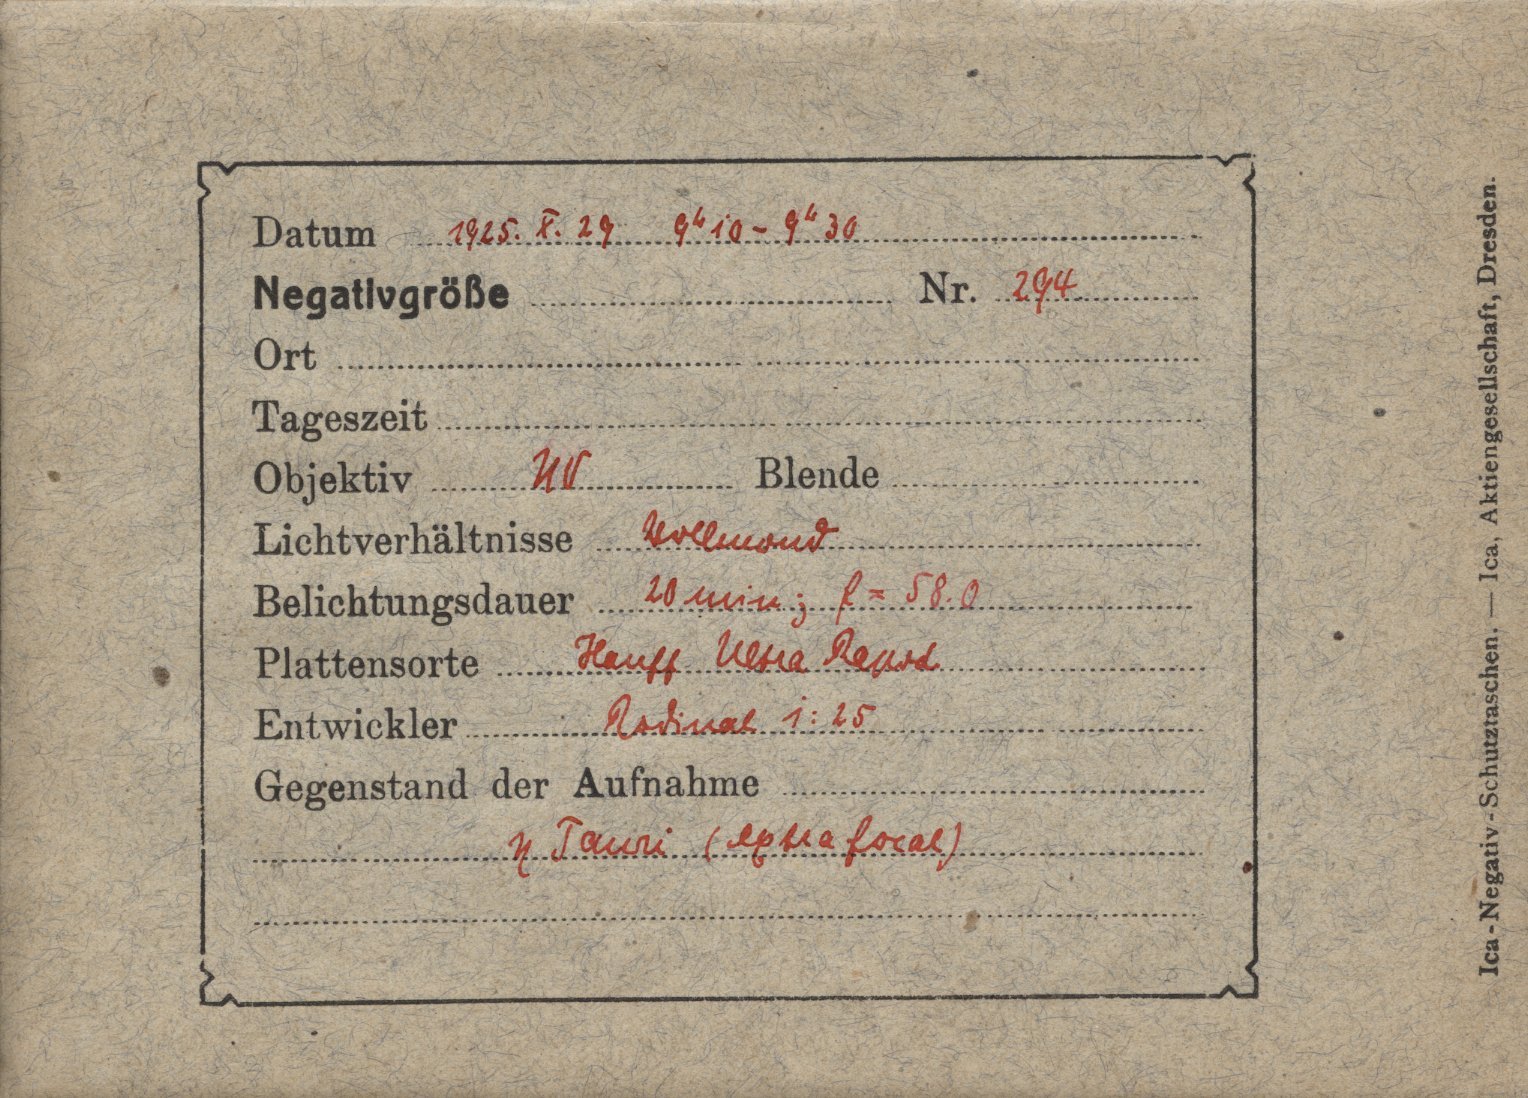 Datum 1925. X. 29 9h10 - 9h30
Negativgröße Nr. 294
Ort
Tageszeit
Objektiv UV Blende
Lichtverhältnisse Vollmond
Belichtungsdauer 20 min; f = 58.0
Plattensorte Hauff Ultra Rapid
Entwickler Rodinal 1:25
Gegenstand der Aufnahme
η Tauri (extrafocal)
Ica-Negativ-Schutztaschen. — Ica, Aktiengesellschaft, Dresden.